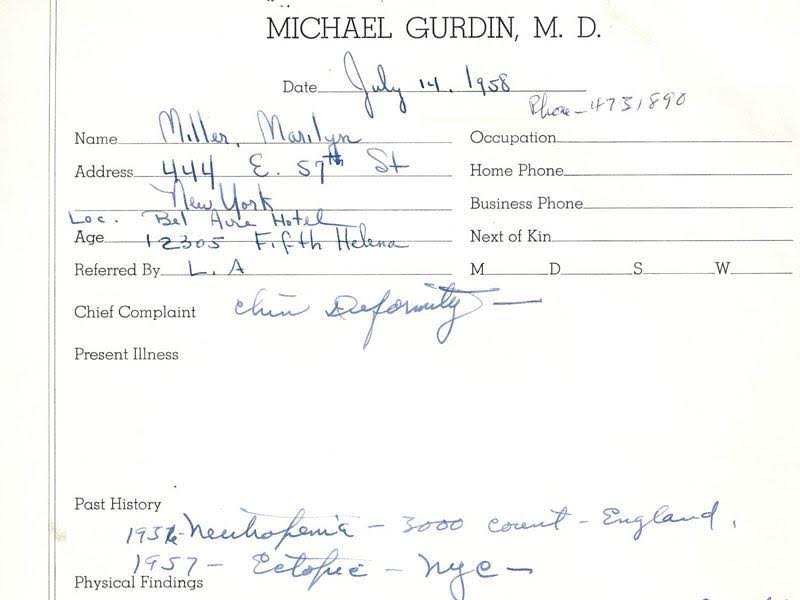 MICHAEL GURDIN, M. D.
Date July 14, 1958
Phone - 4731890
Name Miller, Marilyn
Occupation
Address 444 E. 57th St
Home Phone
New York
Business Phone
Loc. Bel Aire Hotel
Age 12305 Fifth Helena
Next of Kin
Referred By L. A
M D S W
Chief Complaint chin Deformity —
Present Illness
Past History
1956 - Neutropenia - 3000 count - England,
1957 - Ectopic - NYC -
Physical Findings